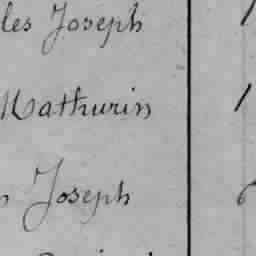 les Joseph 1
Mathurin 1
n Joseph 6